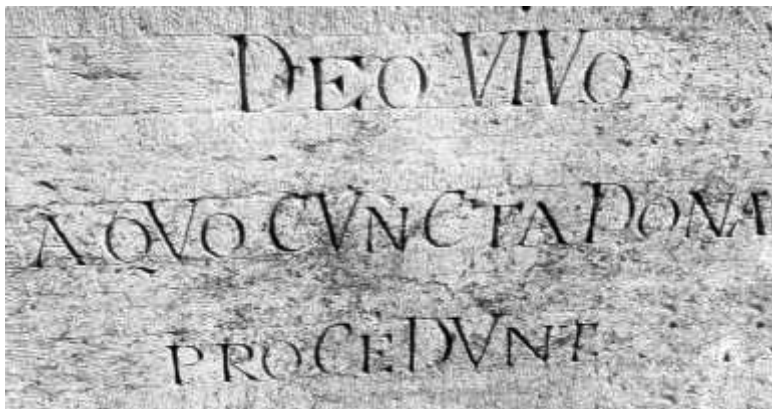 DEO VIVO
A QVO CVNCTA DONA
PROCEDVNT